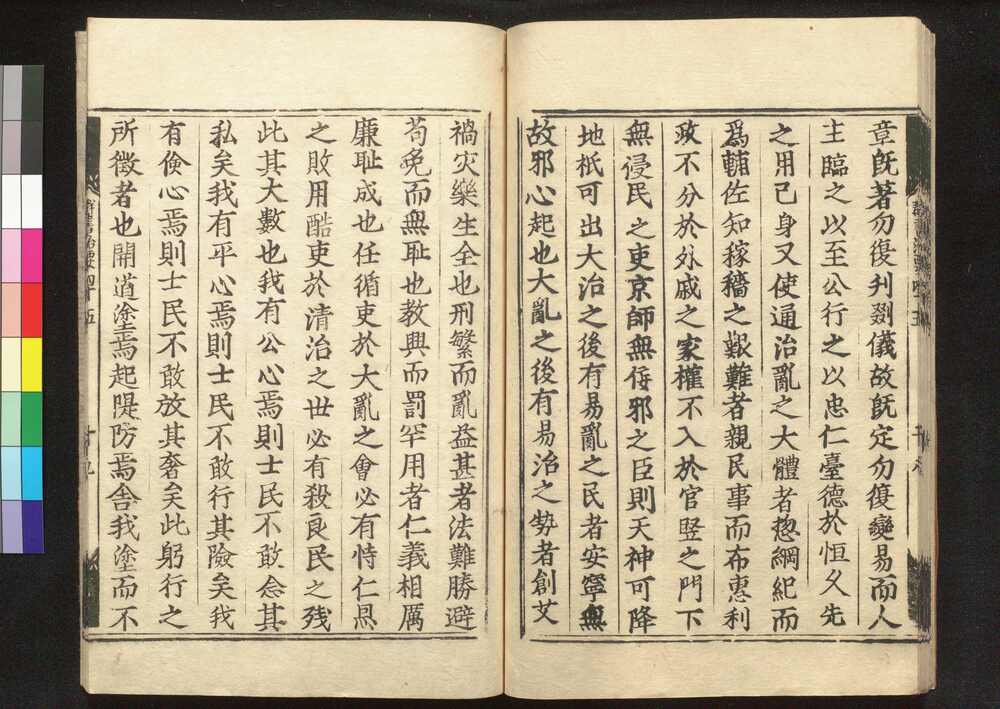 章旣著勿復刋剟儀故旣定勿復變易而人
主臨之以至公行之以忠仁臺德於恒久先
之用己身又使通治亂之大體者揔綱紀而
爲輔佐知稼穡之艱難者親民事而布惠利
政不分於外戚之家權不入於官竪之門下
無侵民之吏京師無佞邪之臣則天神可降
地祇可出大治之後有易亂之民者安寧無
故邪心起也大亂之後有易治之勢者創艾
禍灾樂生全也刑繁而亂益甚者法難勝避
苟免而無耻也教興而罰罕用者仁義相厲
廉耻成也任循吏於大亂之會必有恃仁恩
之敗用酷吏於清治之世必有殺良民之残
此其大數也我有公心焉則士民不敢念其
私矣我有平心焉則士民不敢行其險矣我
有儉心焉則士民不敢放其奢矣此躬行之
所徵者也開道塗焉起隄防焉舍我塗而不
群書治要四十五
十九